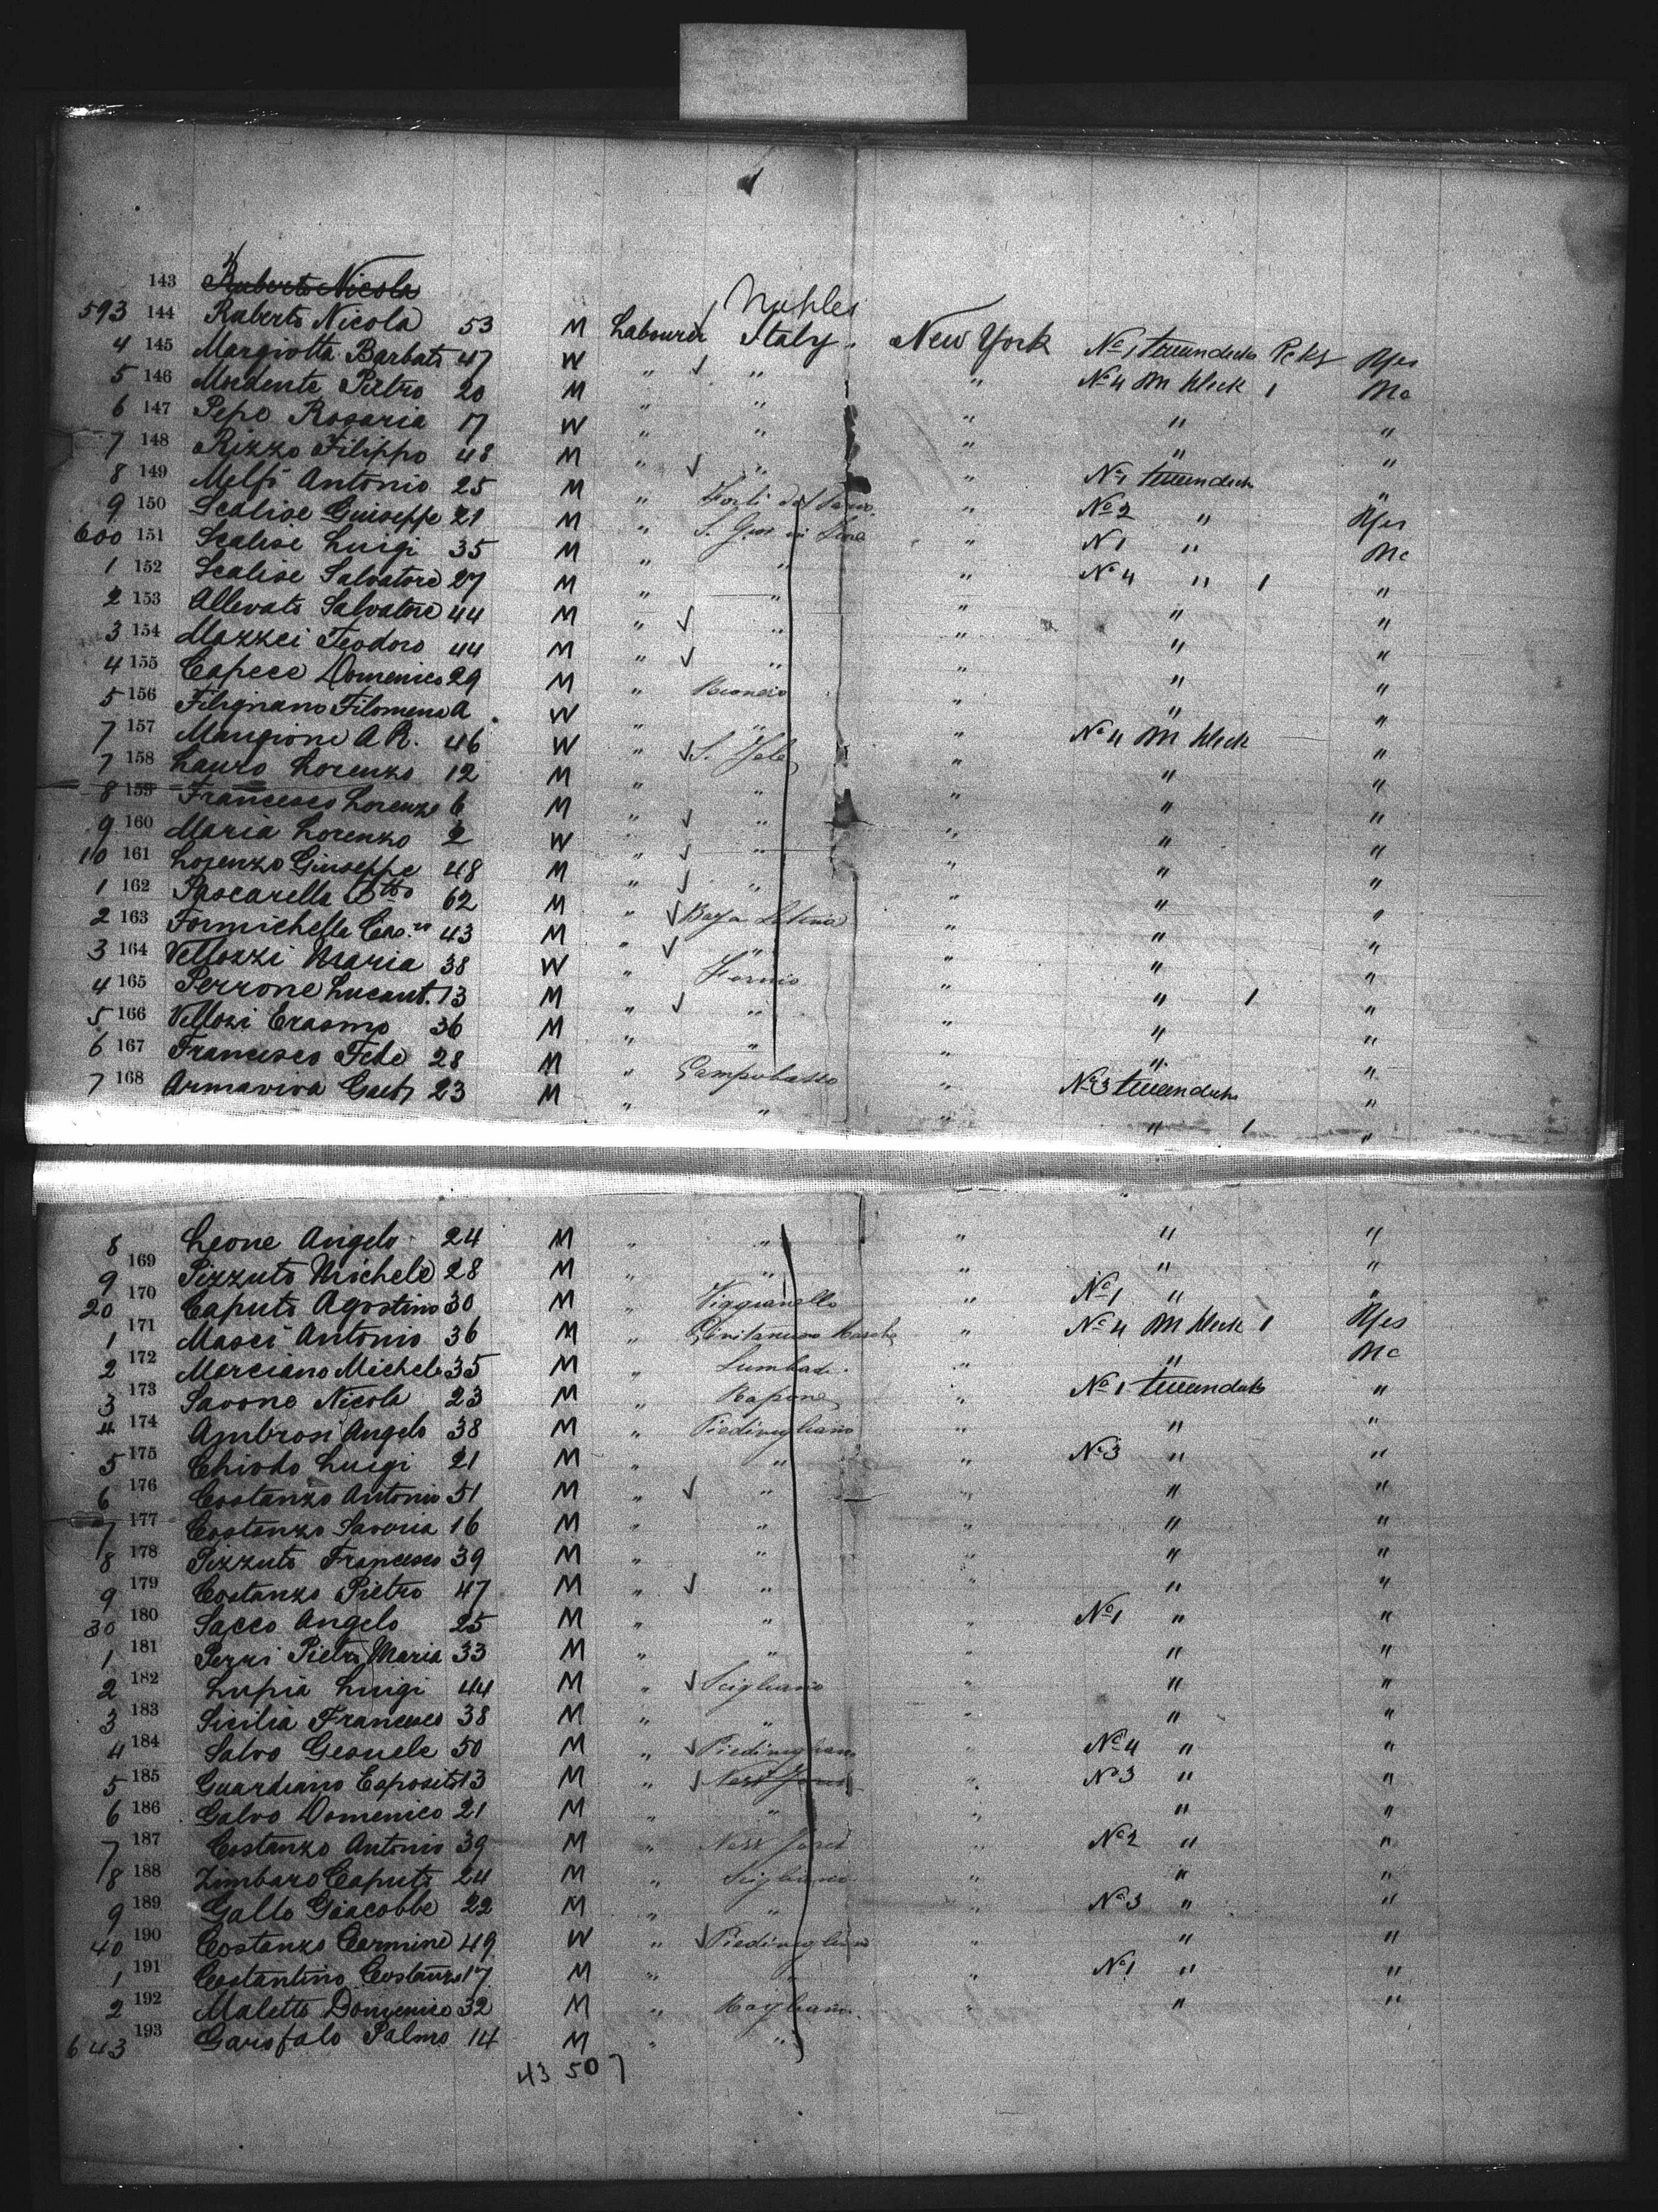 143 Ruberto Nicola
Naples
593 144 Ruberto Nicola 53 M Labourer Italy New York No 1 Pckg Yes
4 145 Margiotta Barbato 47 W " √ " " No 4 M 1 No
5 146 Mordente Pietro 20 M " " " " "
6 147 Pepo Rosaria 17 W " " " " "
7 148 Rizzo Filippo 48 M " √ " " No 1 "
8 149 Melfi Antonio 25 M " Forli del " No 2 " Yes
9 150 Scalise Guiseppe 21 M " S. in " N 1 " No
600 151 Scalise Luigi 35 M " " " No 4 " 1 "
1 152 Scalise Salvatore 27 M " " " " "
2 153 Allevato Salvatore 44 M " √ " " " "
3 154 Mazzei Teodoro 44 M " √ " " " "
4 155 Capece Domenico 29 M " " " "
5 156 Filignano Filomena A W " " " No 4 M "
7 157 Mangione A R. 46 W " √ S. " " "
7 158 Lauro Lorenzo 12 M " " " " "
8 159 Francesco Lorenzo 6 M " √ " " " "
9 160 Maria Lorenzo 2 W " √ " " " "
10 161 Lorenzo Giuseppe 48 M " √ " " " "
1 162 Pascarella 62 M " √ Baja Latina " " "
2 163 Formichella 43 M " √ " " " "
3 164 Vellozzi Maria 38 W " Formio " " 1 "
4 165 Perrone Lucant. 13 M " √ " " " "
5 166 Vellozi Erasmo 36 M " " " " "
6 167 Francesco Fede 28 M " Campobasso " No 3 "
7 168 Armaviva Gaet 23 M " " " " 1 "
8 Leone Angelo 24 M " " " " "
9 169 Pizzuto Michele 28 M " " " " "
20 170 Caputo Agostino 30 M " Viggianello " No 1 " "
1 171 Masci Antonio 36 M " " No 4 M 1 Yes
2 172 Marciano Michele 35 M " " " No
3 173 Savone Nicola 23 M " Rapone " No 1 "
4 174 Ambrosi Angelo 38 M " Piedivigliano " " "
5 175 Chiodo Luigi 21 M " " " No 3 " "
6 176 Costanzo Antonio 51 M " √ " " " "
7 177 Costanzo Saveria 16 M " " " " "
8 178 Pizzuto Francesco 39 M " " " " "
9 179 Costanzo Pietro 47 M " √ " " " "
30 180 Sacco Angelo 25 M " " " No 1 " "
1 181 Perri Pietro Maria 33 M " " " " "
2 182 Lupia Luigi 44 M " √ Scigliano " " "
3 183 Sicilia Francesco 38 M " " " " "
4 184 Salvo 50 M " √ Piedivigliano " No 4 " "
5 185 Guardiano Esposito 13 M " √ " No 3 " "
6 186 Galvo Domenico 21 M " " " " "
7 187 Costanzo Antonio 39 M " " No 2 " "
8 188 Zimbaro Caputo 24 M " Scigliano " " "
9 189 Gallo Giacobbe 22 M " " " No 3 " "
40 190 Costanzo Carmine 49 W " √ Piedivigliano " " "
1 191 Costantino Costanzo 17 M " " " No 1 " "
2 192 Maletto Domenico 32 M " Rogliano " " "
643 193 Garofalo Palmo 14 M " "
43 507